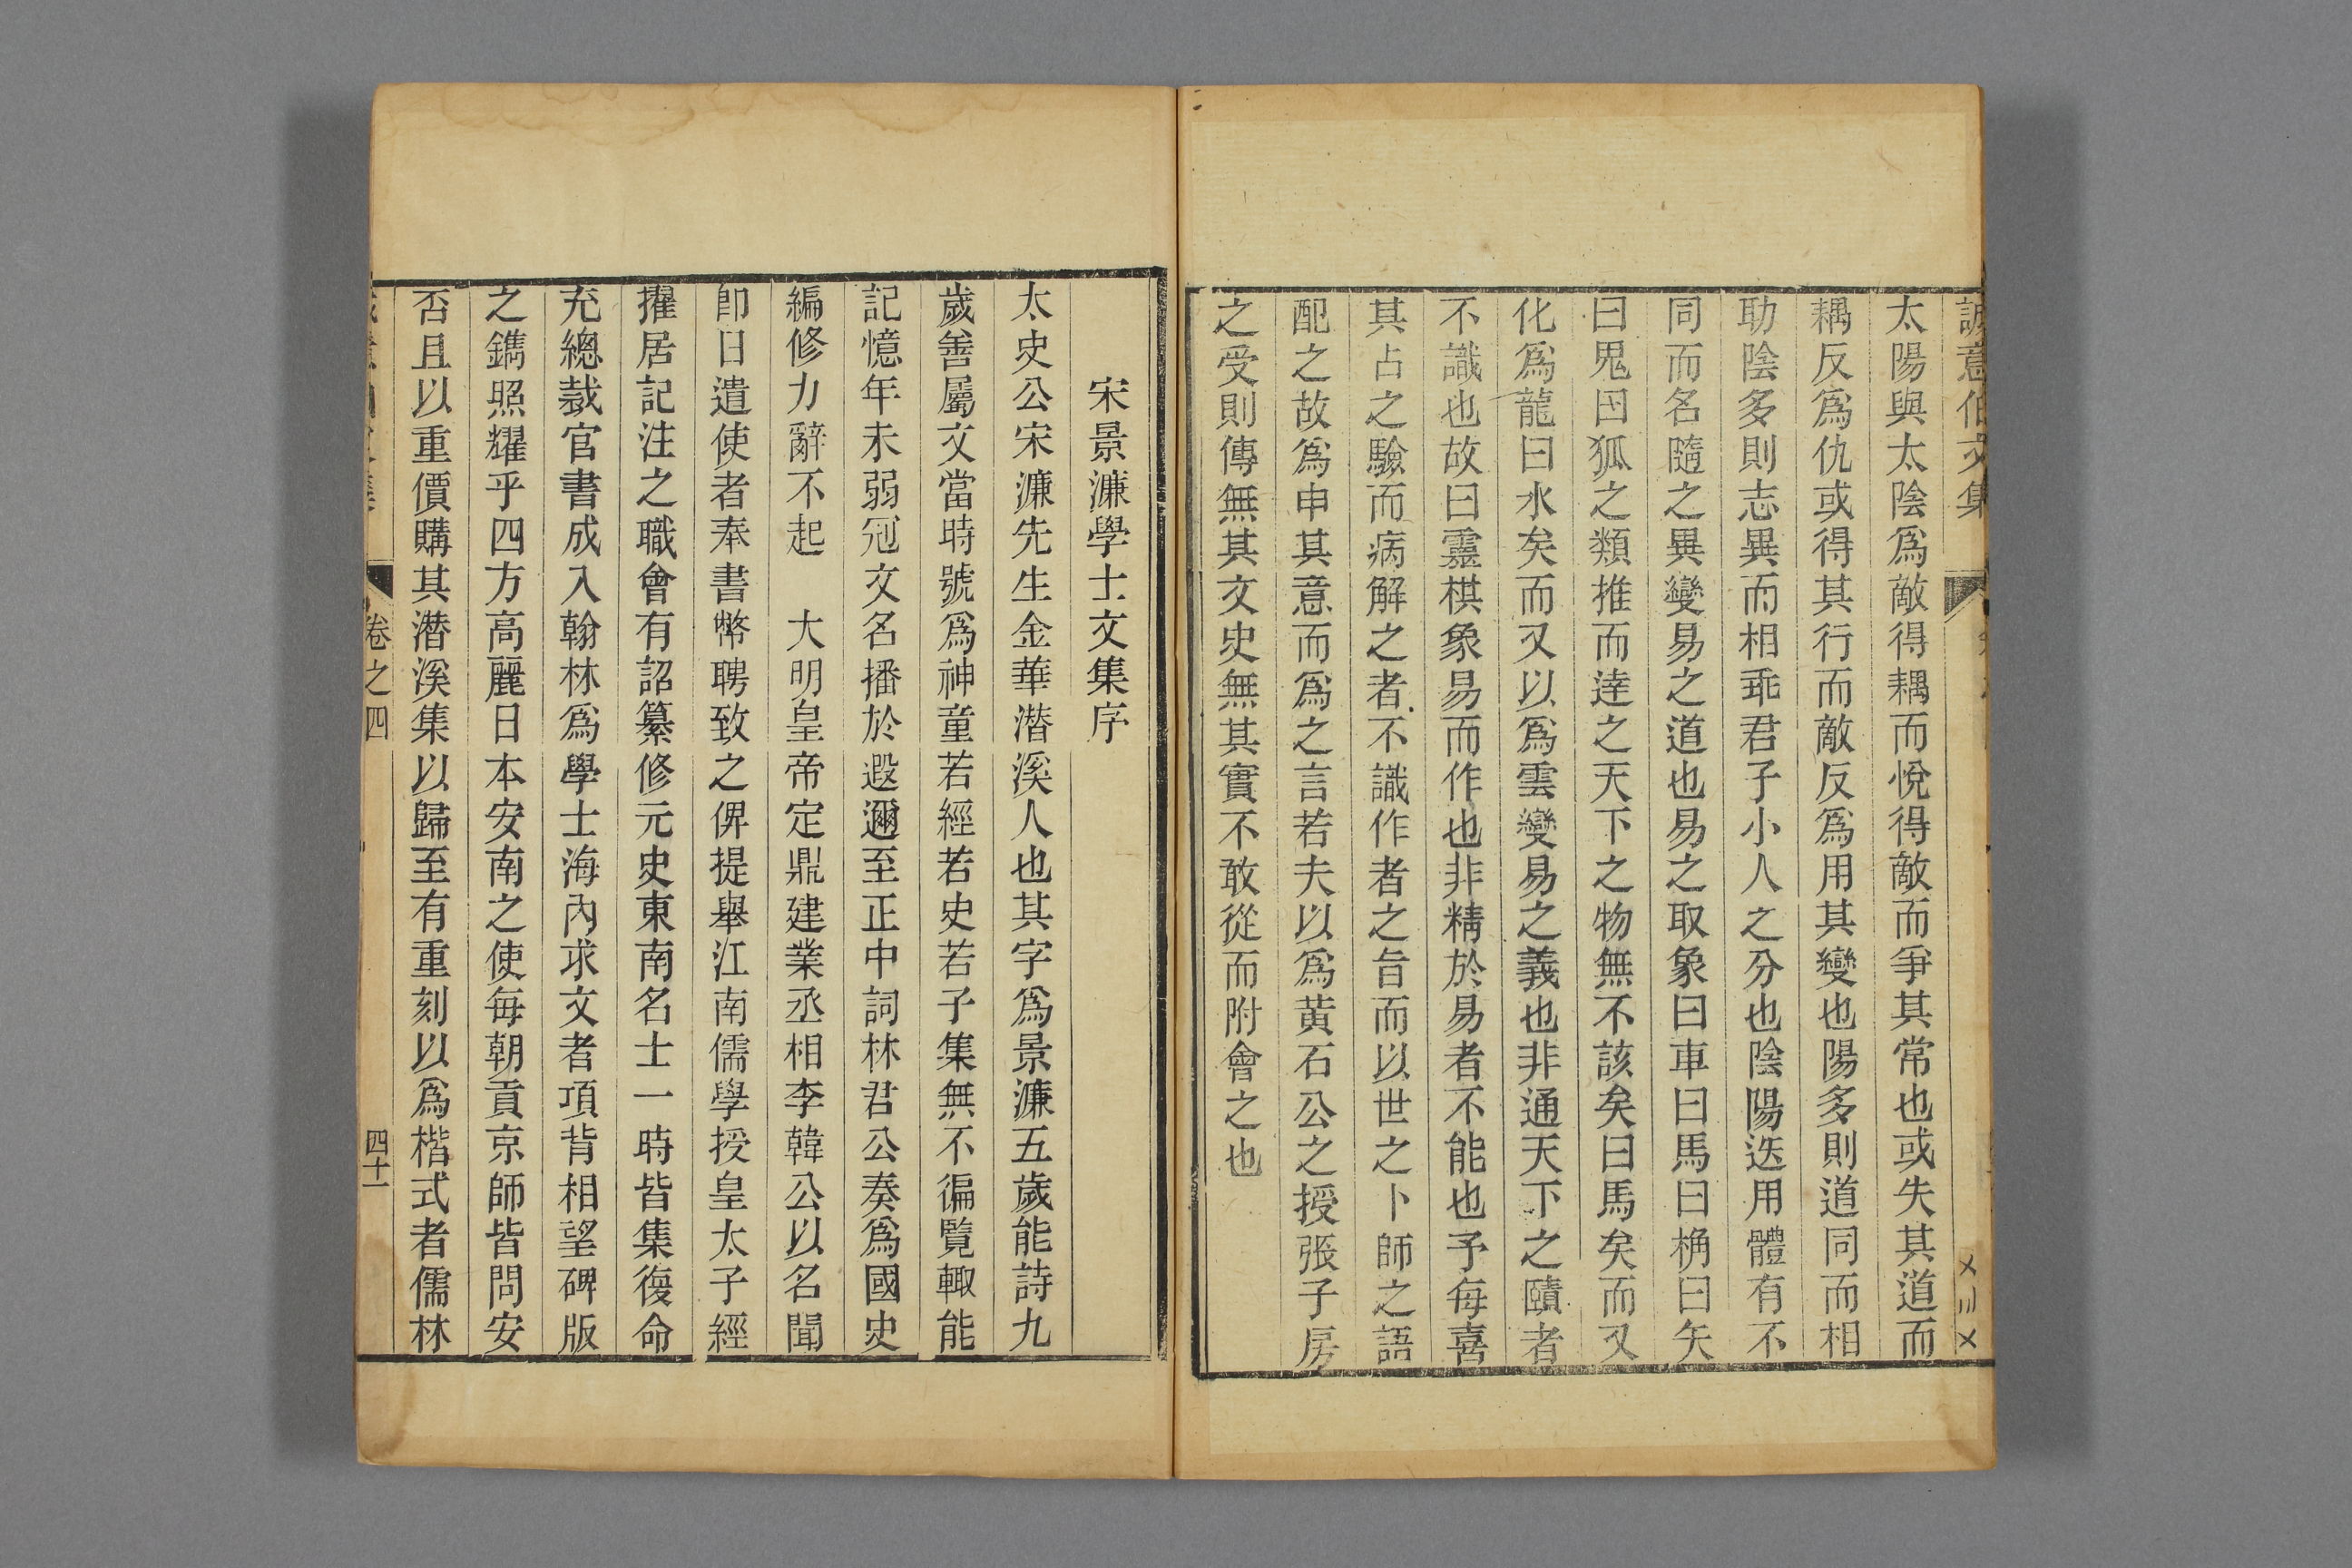 誠意伯文集
太陽與太陰爲敵得耦而悅得敵而爭其常也或失其道而
耦反爲仇或得其行而敵反爲用其變也陽多則道同而相
助陰多則志異而相乖君子小人之分也陰陽迭用體有不
同而名隨之異變易之道也易之取象曰車曰馬曰桷曰矢
曰鬼曰狐之類推而達之天下之物無不該矣曰馬矣而又
化爲龍曰水矣而又以爲雲變易之義也非通天下之賾者
不識也故曰靈棋象易而作也非精於易者不能也予每喜
其占之驗而病解之者不識作者之旨而以世之卜師之語
配之故爲申其意而爲之言若夫以爲黄石公之授張子房
之受則傳無其文史無其實不敢從而附會之也
宋景濂學士文集序
太史公宋濂先生金華潜溪人也其字爲景濂五歲能詩九
歲善屬文當時號爲神童若經若史若子集無不徧覽輙能
記憶年未弱冠文名播於遐邇至正中詞林君公奏爲國史
編修力辭不起　大明皇帝定鼎建業丞相李韓公以名聞
卽日遣使者奉書幣聘致之俾提舉江南儒學授皇太子經
擢居記注之職會有詔纂修元史東南名士一時皆集復命
充總裁官書成入翰林爲學士海內求文者項背相望碑版
之鐫照耀乎四方高麗日本安南之使每朝貢京師皆問安
否且以重價購其潜溪集以歸至有重刻以爲楷式者儒林
卷之四
四十一